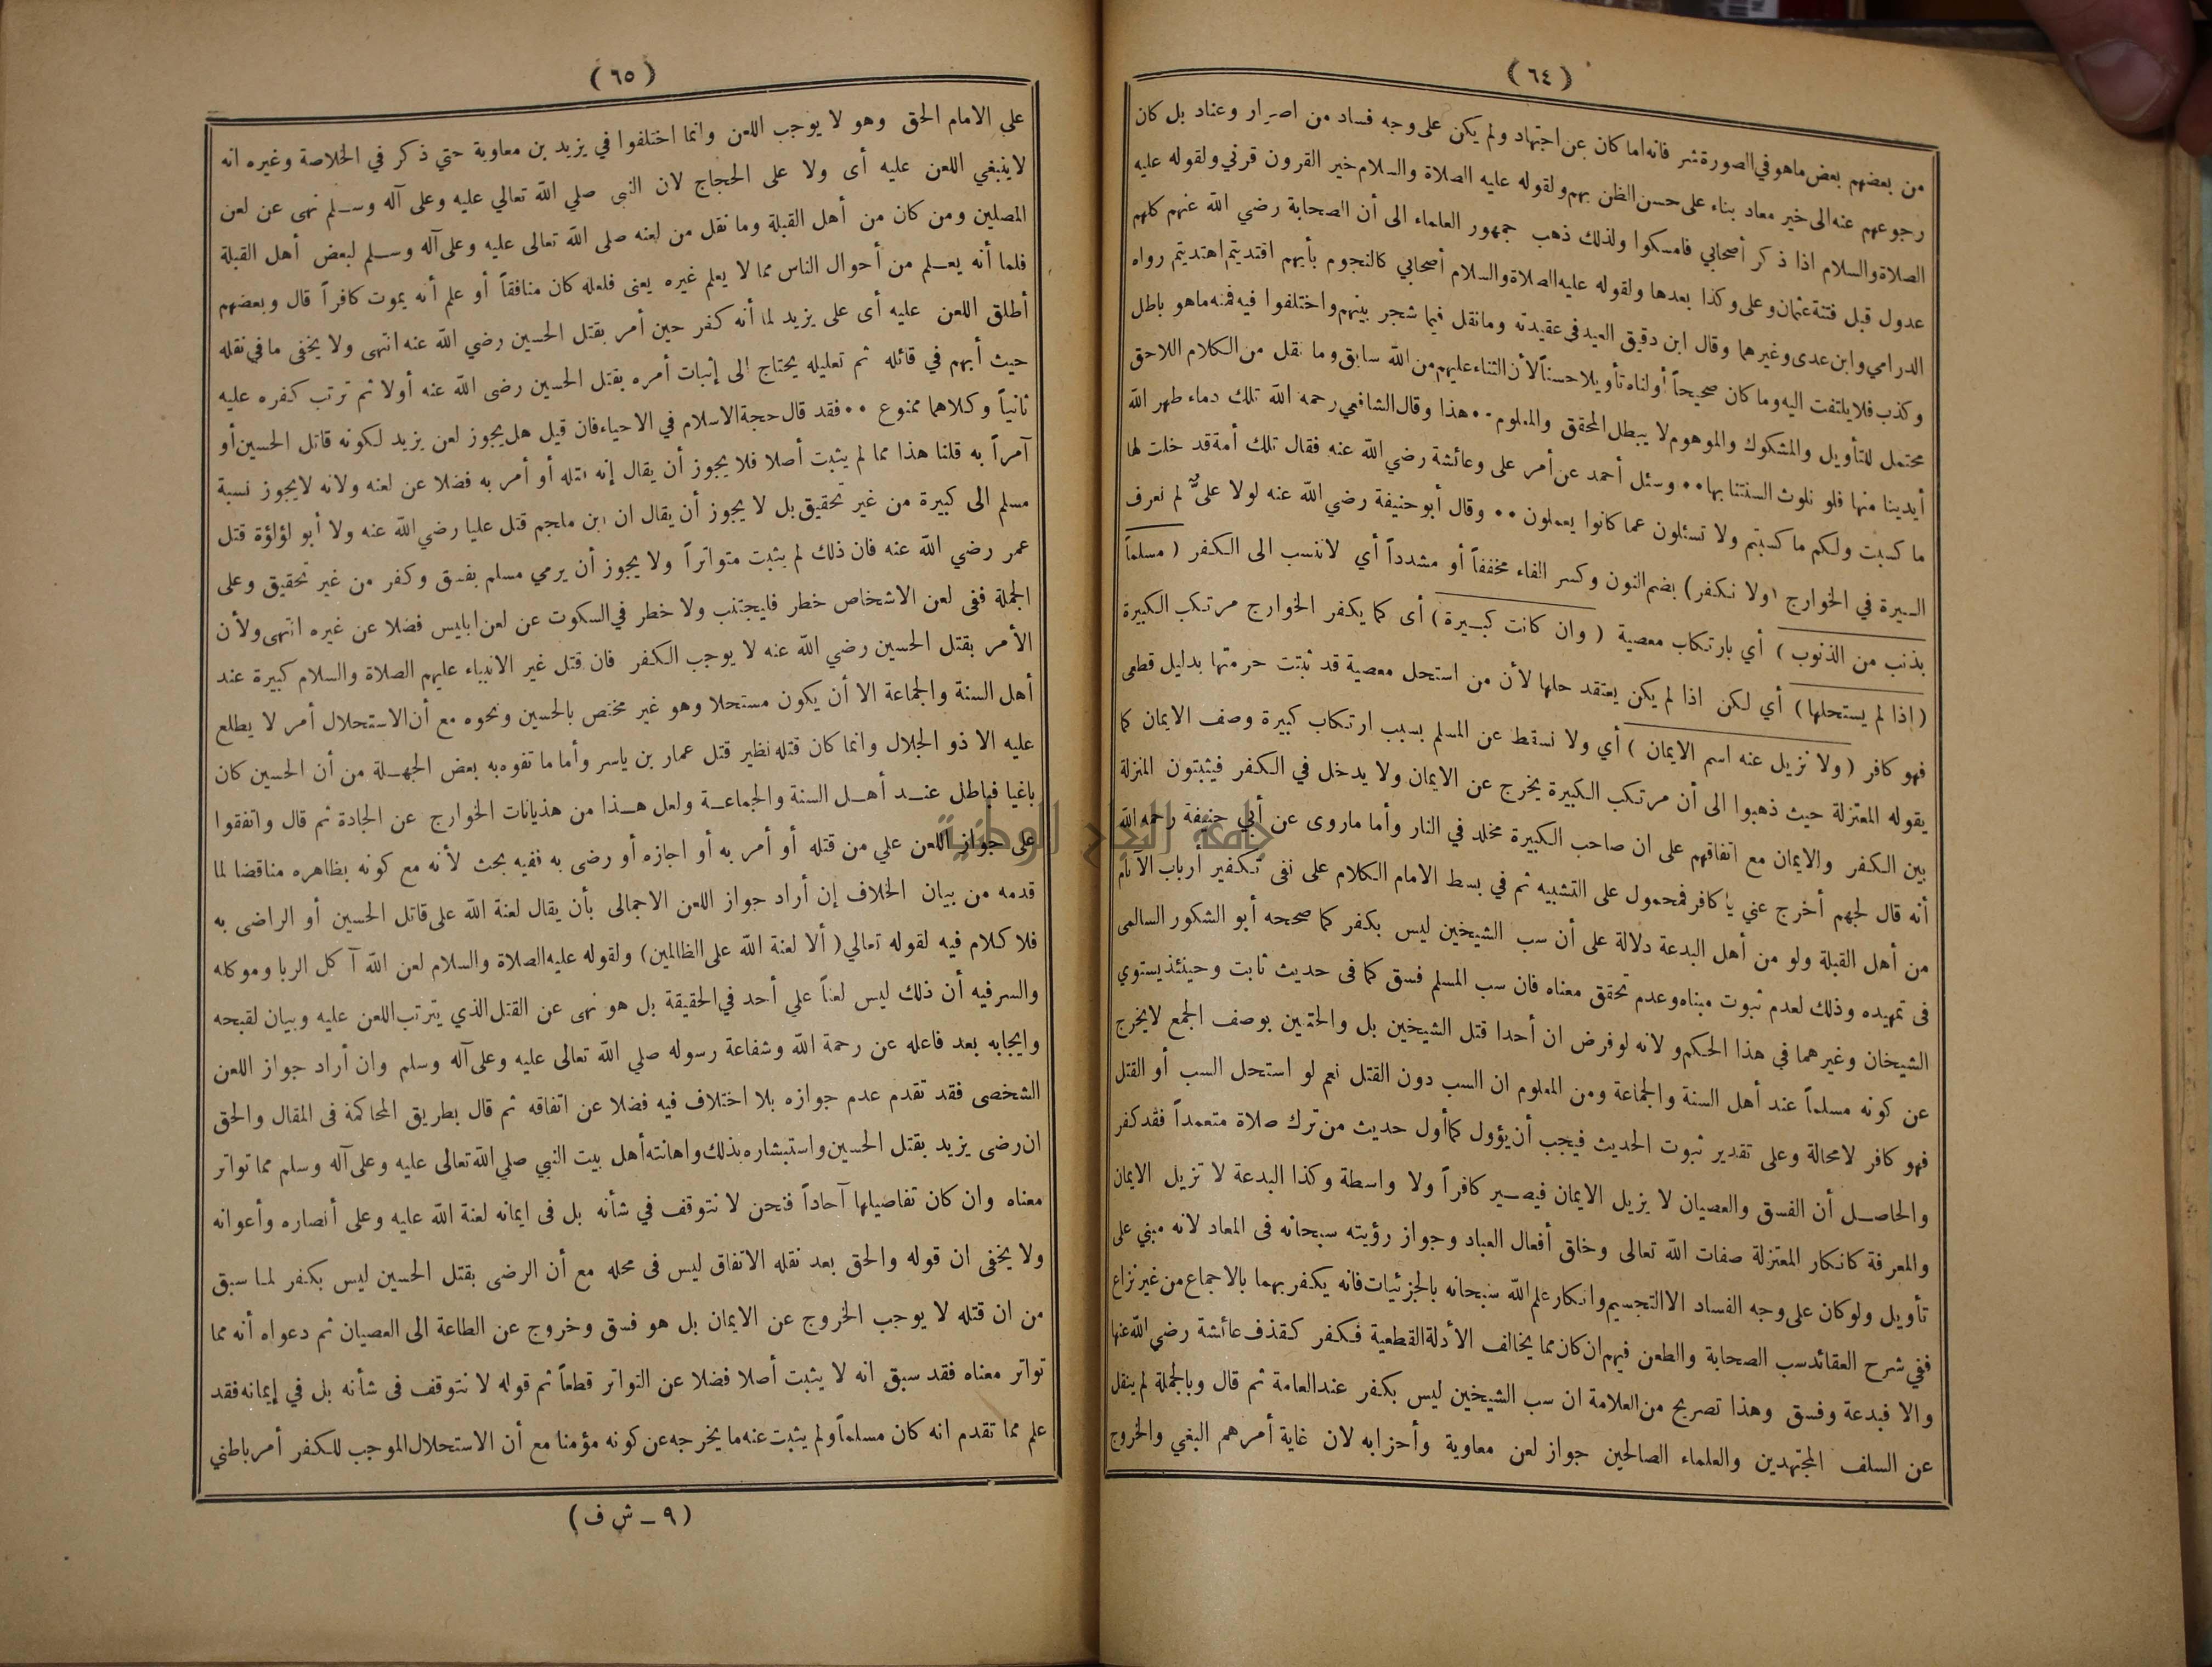 ( ٦٤ )
من بعضهم بعض ماهو في الصورة شر فانه اما كان عن اجتهاد ولم يكن على وجه فساد من اصرار وعناد بل كان
رجوعهم عنه الى خير معاد بناء على حسن الظن بهم ولقوله عليه الصلاة والسلام خير القرون قرني ولقوله عليه
الصلاة والسلام اذا ذكر أصحابي فامسكوا ولذلك ذهب جمهور العلماء الى أن الصحابة رضي الله عنهم كلهم
عدول قبل فتنة عثمان وعلى وكذا بعدها ولقوله عليه الصلاة والسلام أصحابي كالنجوم بأيهم اقتديتم اهتديتم رواه
الدرامي وابن عدى وغيرهما وقال ابن دقيق العيد في عقيدته ومانقل فيما شجر بينهم واختلفوا فيه فمنه ماهو باطل
وكذب فلا يلتفت اليه وما كان صحيحاً أولناه تأويلا حسناً لأن الثناء عليهم من الله سابق وما نقل من الكلام اللاحق
محتمل للتأويل والمشكوك والموهوم لا يبطل المحقق والمعلوم •• هذا وقال الشافعي رحمه الله تلك دماء طهر الله
أيدينا منها فلو نلوث السنتنا بها •• وسئل أحمد عن أمر على وعائشة رضي الله عنه فقال تلك أمة قد خلت لها
ما كسبت ولكم ما كسبتم ولا تسئلون عما كانوا يعملون •• وقال أبو حنيفة رضي الله عنه لولا علىٌّ لم نعرف
السيرة في الخوارج (ولا نكفر) بضم النون وكسر الفاء مخففاً أو مشدداً أي لاننسب الى الكفر ( مسلماً
بذنب من الذنوب ) أي بارتكاب معصية ( وان كانت كبيرة ) أى كما يكفر الخوارج مرتكب الكبيرة
( اذا لم يستحلها ) أي لكن اذا لم يكن يعتقد حلها لأن من استحل معصية قد ثبتت حرمتها بدليل قطعى
فهو كافر ( ولا نزيل عنه اسم الايمان ) أي ولا نسقط عن المسلم بسبب ارتكاب كبيرة وصف الايمان كما
يقوله المعتزلة حيث ذهبوا الى أن مرتكب الكبيرة يخرج عن الايمان ولا يدخل في الكفر فيثبتون المنزلة
بين الكفر والايمان مع اتفاقهم على ان صاحب الكبيرة مخلد في النار وأما ماروى عن أبي حنيفة رحمه الله
أنه قال لجهم أخرج عني يا كافر فمحمول على التشبيه ثم في بسط الامام الكلام على نفى تكفير أرباب الآثام
من أهل القبلة ولو من أهل البدعة دلالة على أن سب الشيخين ليس بكفر كما صححه أبو الشكور السالمى
فى تمهيده وذلك لعدم ثبوت مبناه وعدم تحقق معناه فان سب المسلم فسق كما فى حديث ثابت وحينئذ يستوي
الشيخان وغيرهما في هذا الحكم ولانه لو فرض ان أحدا قتل الشيخين بل والختنين بوصف الجمع لايخرج
عن كونه مسلماً عند أهل السنة والجماعة ومن المعلوم ان السب دون القتل نعم لو استحل السب أو القتل
فهو كافر لامحالة وعلى تقدير ثبوت الحديث فيجب أن يؤول كما أول حديث من ترك صلاة متعمداً فقد كفر
والحاصل أن الفسق والعصيان لا يزيل الايمان فيصير كافراً ولا واسطة وكذا البدعة لا تزيل الايمان
والمعرفة كانكار المعتزلة صفات الله تعالى وخلق أفعال العباد وجواز رؤيته سبحانه فى المعاد لانه مبني على
تأويل ولو كان على وجه الفساد الا التجسيم وانكار علم الله سبحانه بالجزئيات فانه يكفر بهما بالاجماع من غير نزاع
ففي شرح العقائد سب الصحابة والطعن فيهم ان كان مما يخالف الأدلة القطعية فكفر كقذف عائشة رضي الله عنها
والا فبدعة وفسق وهذا تصريح من العلامة ان سب الشيخين ليس بكفر عند العامة ثم قال وبالجملة لم ينقل
عن السلف المجتهدين والعلماء الصالحين جواز لعن معاوية وأحزابه لان غاية أمرهم البغي والخروج
( ٦٥ )
علي الامام الحق وهو لا يوجب اللعن وانما اختلفوا في يزيد بن معاوية حتي ذكر في الخلاصة وغيره انه
لاينبغي اللعن عليه أى ولا على الحجاج لان النبى صلي الله تعالي عليه وعلى آله وسلم نهى عن لعن
المصلين ومن كان من أهل القبلة وما نقل من لعنه صلى الله تعالى عليه وعلى آله وسلم لبعض أهل القبلة
فلما أنه يعلم من أحوال الناس مما لا يعلم غيره يعنى فلعله كان منافقاً أو علم أنه يموت كافراً قال وبعضهم
أطلق اللعن عليه أى على يزيد لما أنه كفر حين أمر بقتل الحسين رضي الله عنه انتهى ولا يخفى ما في نقله
حيث أبهم في قائله ثم تعليله يحتاج الى إثبات أمره بقتل الحسين رضى الله عنه أولا ثم ترتب كفره عليه
ثانياً وكلاهما ممنوع •• فقد قال حجة الاسلام في الاحياء فان قيل هل يجوز لعن يزيد لكونه قاتل الحسين أو
آمراً به قلنا هذا مما لم يثبت أصلا فلا يجوز أن يقال إنه قتله أو أمر به فضلا عن لعنه ولانه لايجوز نسبة
مسلم الى كبيرة من غير تحقيق بل لا يجوز أن يقال ان ابن ملجم قتل عليا رضي الله عنه ولا أبو لؤلؤة قتل
عمر رضي الله عنه فان ذلك لم يثبت متواتراً ولا يجوز أن يرمي مسلم بفسق وكفر من غير تحقيق وعلى
الجملة ففى لعن الاشخاص خطر فليجتنب ولا خطر في السكوت عن لعن ابليس فضلا عن غيره انتهى ولأن
الأمر بقتل الحسين رضي الله عنه لا يوجب الكفر فان قتل غير الانبياء عليهم الصلاة والسلام كبيرة عند
أهل السنة والجماعة الا أن يكون مستحلا وهو غير مختص بالحسين ونحوه مع أن الاستحلال أمر لا يطلع
عليه الا ذو الجلال وانما كان قتله نظير قتل عمار بن ياسر وأما ما تفوه به بعض الجهلة من أن الحسين كان
باغيا فباطل عند أهل السنة والجماعة ولعل هذا من هذيانات الخوارج عن الجادة ثم قال واتفقوا
على جواز اللعن علي من قتله أو أمر به أو اجازه أو رضى به ففيه بحث لأنه مع كونه بظاهره مناقضا لما
قدمه من بيان الخلاف إن أراد جواز اللعن الاجمالى بأن يقال لعنة الله على قاتل الحسين أو الراضى به
فلا كلام فيه لقوله تعالي ( ألا لعنة الله على الظالمين ) ولقوله عليه الصلاة والسلام لعن الله آكل الربا وموكله
والسر فيه أن ذلك ليس لعناً علي أحد في الحقيقة بل هو نهى عن القتل الذي يترتب اللعن عليه وبيان لقبحه
وايجابه بعد فاعله عن رحمة الله وشفاعة رسوله صلي الله تعالى عليه وعلى آله وسلم وان أراد جواز اللعن
الشخصى فقد تقدم عدم جوازه بلا اختلاف فيه فضلا عن اتفاقه ثم قال بطريق المحاكمة فى المقال والحق
ان رضى يزيد بقتل الحسين واستبشاره بذلك واهانته أهل بيت النبي صلي الله تعالى عليه وعلى آله وسلم مما تواتر
معناه وان كان تفاصيلها آحاداً فنحن لا نتوقف في شأنه بل فى ايمانه لعنة الله عليه وعلى أنصاره وأعوانه
ولا يخفى ان قوله والحق بعد نقله الاتفاق ليس فى محله مع أن الرضى بقتل الحسين ليس بكفر لما سبق
من ان قتله لا يوجب الخروج عن الايمان بل هو فسق وخروج عن الطاعة الى العصيان ثم دعواه أنه مما
تواتر معناه فقد سبق انه لا يثبت أصلا فضلا عن التواتر قطعاً ثم قوله لا نتوقف فى شأنه بل في إيمانه فقد
علم مما تقدم انه كان مسلماً ولم يثبت عنه ما يخرجه عن كونه مؤمنا مع أن الاستحلال الموجب للكفر أمر باطني
( ٩ – ش ف )
جامعة النجاح الوطنية